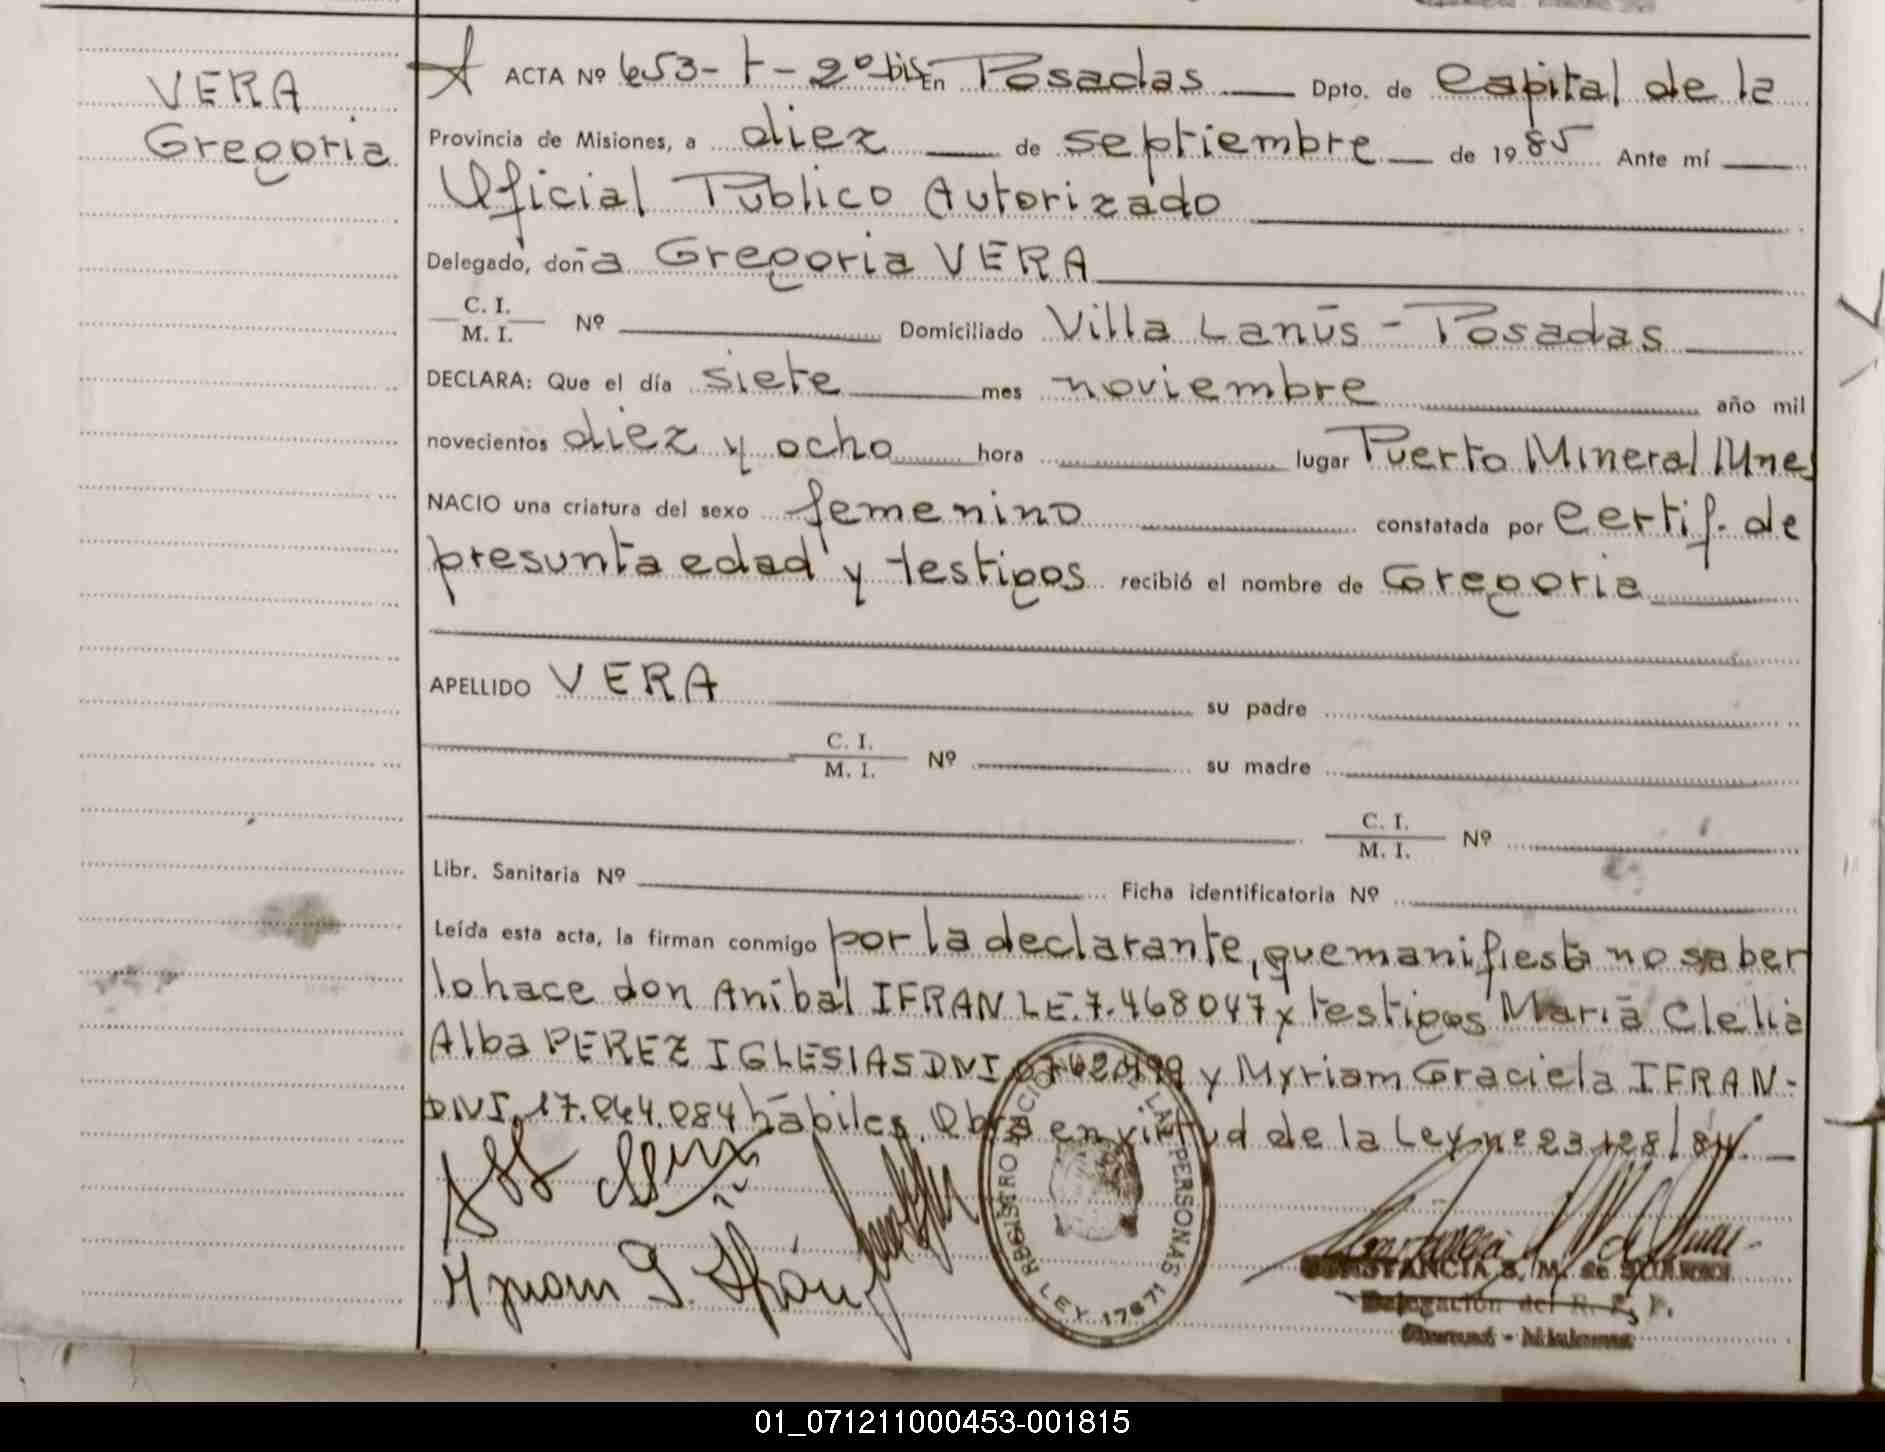 VERA
Gregoria
A ACTA Nº 653-t-2º bis En Posadas Dpto. de Capital de la
Provincia de Misiones, a diez de septiembre de 1985 Ante mí
Oficial Público Autorizado
Delegado, doña Gregoria VERA
C. I.
M. I. Nº Domiciliado Villa Lanús - Posadas
DECLARA: Que el día siete mes noviembre año mil
novecientos diez y ocho hora lugar Puerto Mineral Mnes
NACIO una criatura del sexo femenino constatada por certif. de
presunta edad y testigos recibió el nombre de Gregoria
APELLIDO VERA su padre
C. I.
M. I. Nº su madre
C. I.
M. I. Nº
Libr. Sanitaria Nº Ficha identificatoria Nº
Leída esta acta, la firman conmigo por la declarante, que manifiesta no saber
lo hace don Anibal IFRAN LE. 7.468047 y testigos María Clelia
Alba PEREZ IGLESIAS DNI y Myriam Graciela IFRAN-
DNI. 17.044.084 hábiles. Obra en virtud de la Ley nº 23128/84.
Myriam G. Ifrán
REGISTRO LAS PERSONAS
LEY 17671
CONSTANCIA S. M. de
Delegación del R. P.
01_071211000453-001815